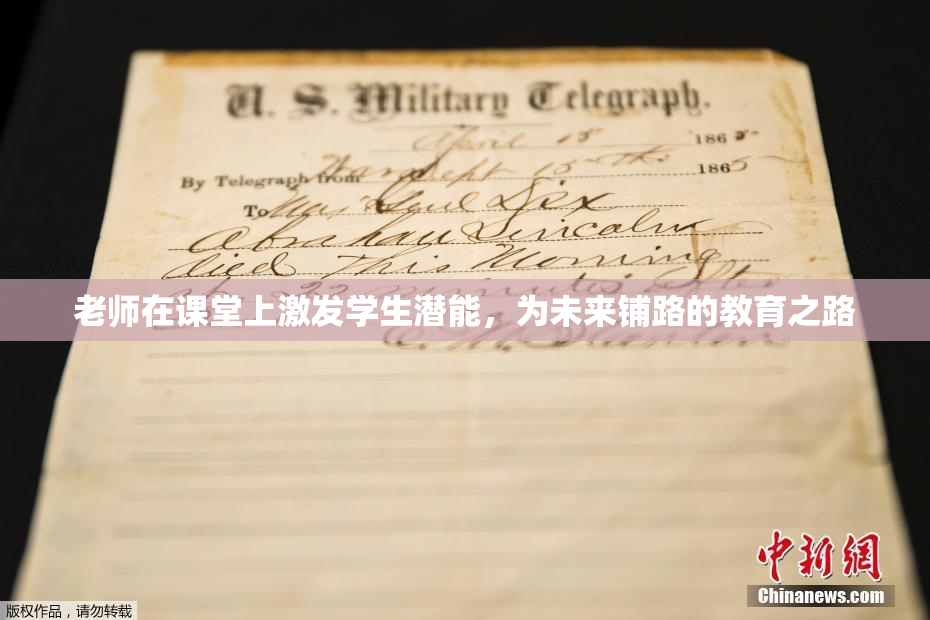 U. S. Military Telegraph.
April 15 1865
By Telegraph from War Dept 15th 1865
To Maj Genl Dix
Abraham Lincoln
died This Morning
at 22 minutes after
老师在课堂上激发学生潜能，为未来铺路的教育之路
中新网
Chinanews.com
版权作品，请勿转载